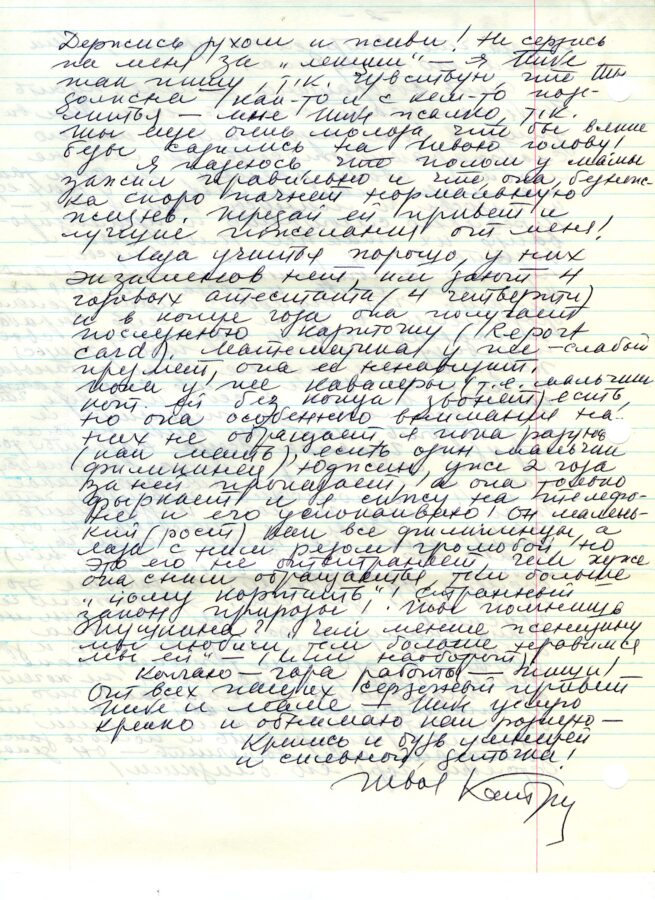 Держись духом и живи! Не сердись
на меня за „лекции" — я тебе
так пишу, т.к. чувствую, что ты
должна как-то и с кем-то поде-
литься — мне тебя жалко, т.к.
ты еще очень молода, что бы всякие
беды садились на твою голову!
Я надеюсь что потом у мамы
зажил правильно и что она, бедняж-
ка скоро начнет нормальную
жизнь. Передай ей привет и
лучшие пожелания от меня!
Лада учится хорошо, у них
экзаменов нет, им дают 4
годовых аттестата (4 четверти)
и в конце года она получает
последнюю карточку (Report
card). Математика у нее — слабый
предмет, она ее ненавидит.
Пока у нее кавалеры (т.е. мальчики
кот. ей без конца звонят) есть,
но она особенно внимания на
них не обращает я пока радуюсь
(как мать), есть один мальчик
филипинец, Юджин, уже 2 года
за ней пропадает, а она только
фыркает и я сижу на телефо-
не и его успокаиваю! Он малень-
кий (рост) как все филипинцы, а
Лада с ним рядом громобой, но
это его не отстраняет, чем хуже
она с ним обращается, тем больше
„йому кортить"! Странный
закон природы! Как помнишь
Пушкина? „Чем меньше женщину
мы любим, тем больше нравимся
мы ей" — (или наоборот)!
Кончаю — гора работы — Пиши!
От всех наших сердечный привет
тебе и маме — тебя целую
крепко и обнимаю как родную —
Крепись и будь умницей
и сильной, деточка!
Твоя